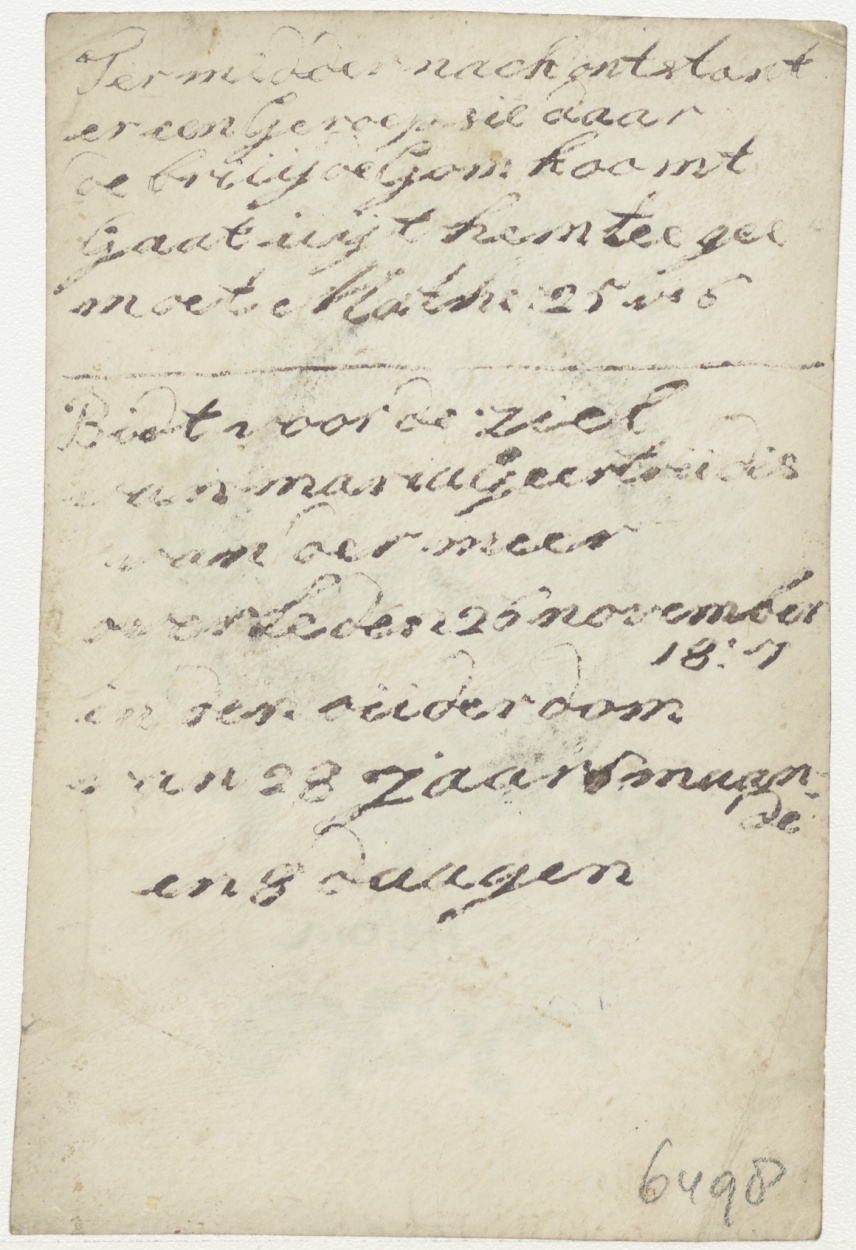 Ter middernach ontstont
er een Geroep sie daar
de bruijdeGom koomt
Gaat uijt hem tee gee
moet Mathe: 25 v: 6
Bidt voor de ziel
van maria Geertruidis
van der meer
overleden 26 november
18:7
in den ouderdom
van 28 Jaar 6 maan-
de
en 8 daagen
6498